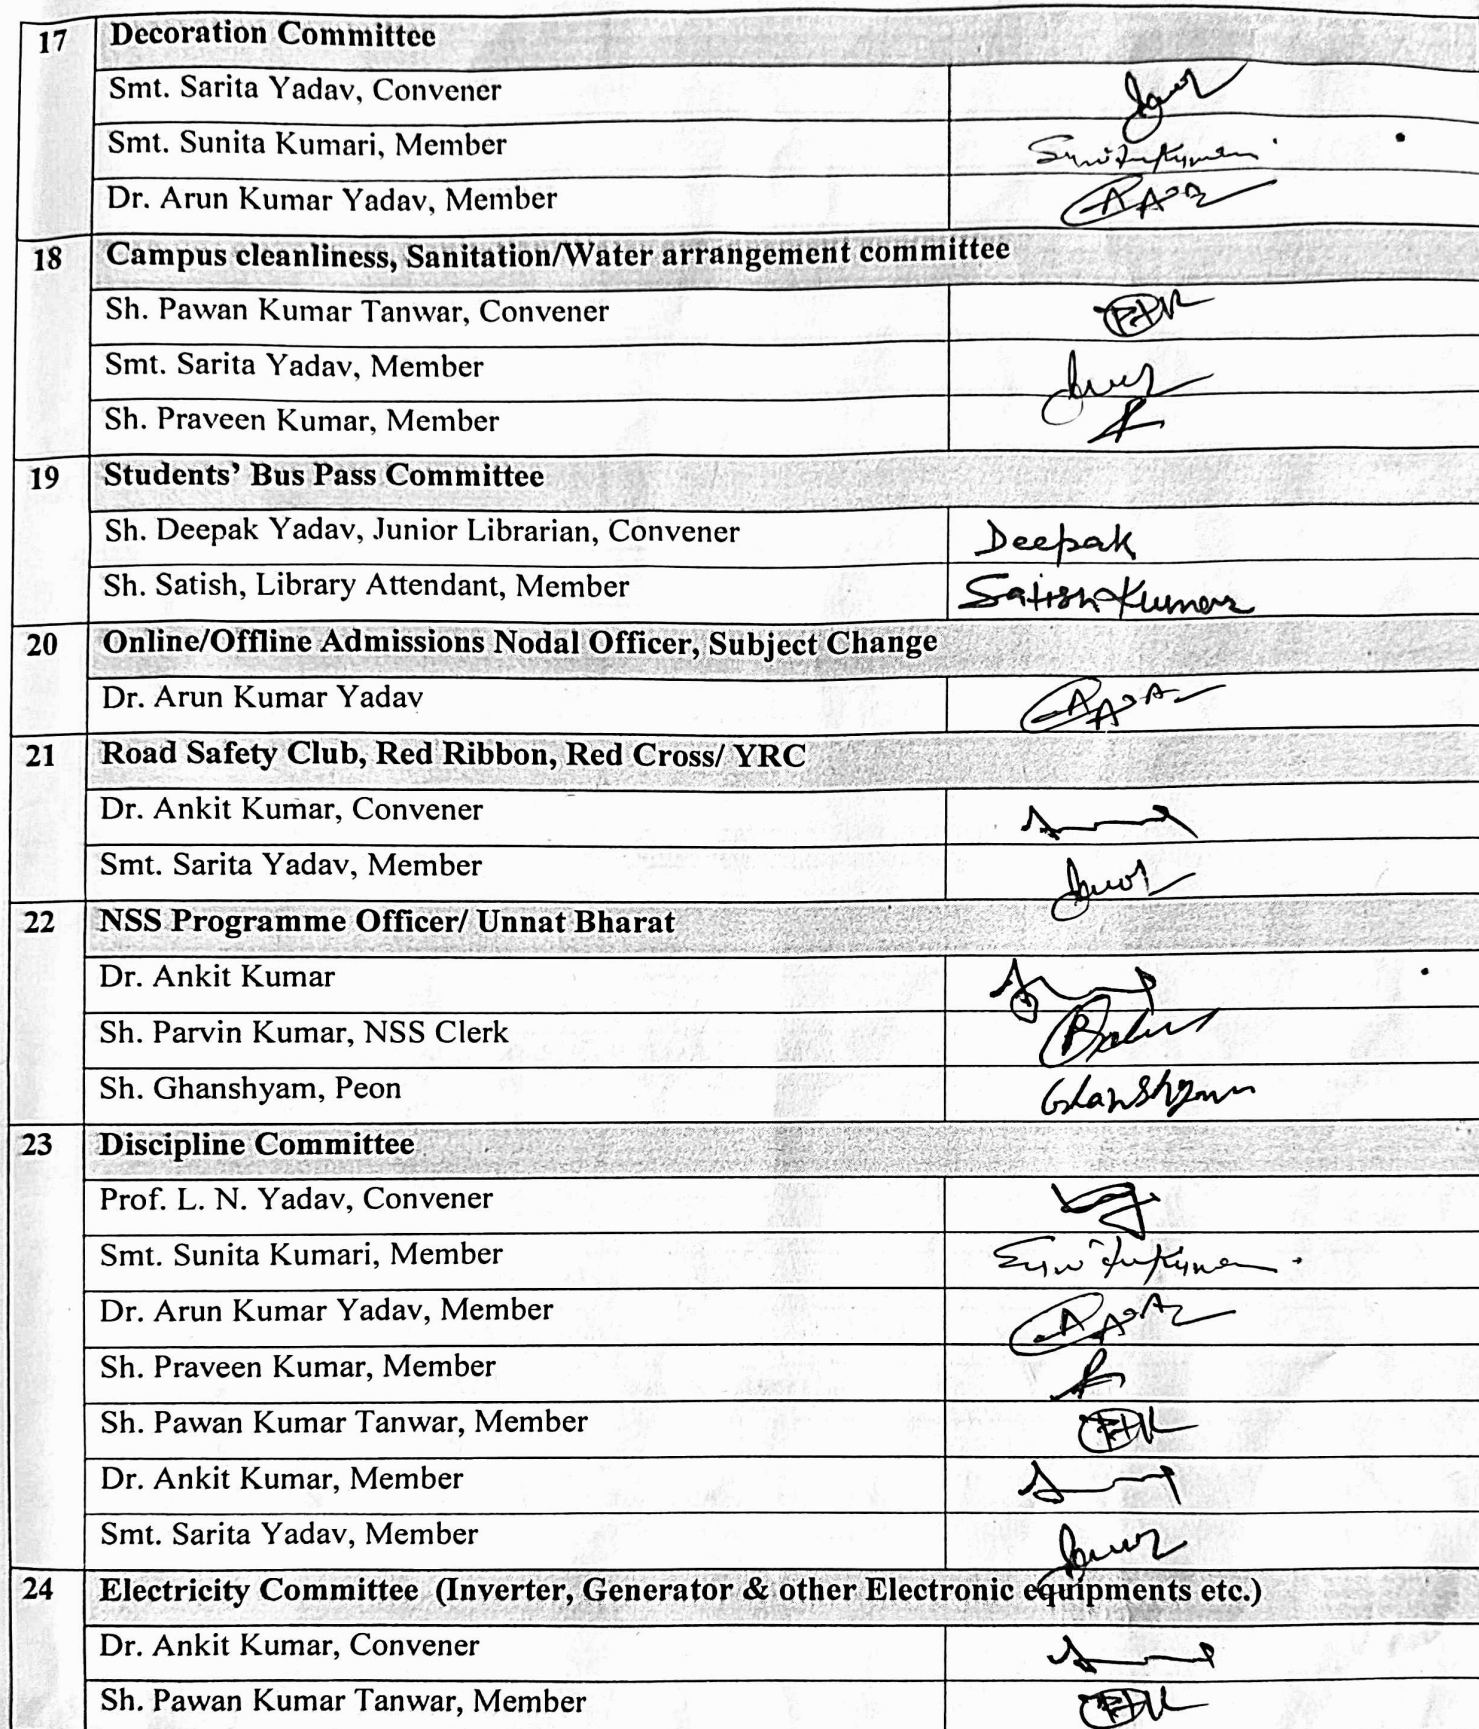 17 Decoration Committee
Smt. Sarita Yadav, Convener
Smt. Sunita Kumari, Member
Dr. Arun Kumar Yadav, Member
18 Campus cleanliness, Sanitation/Water arrangement committee
Sh. Pawan Kumar Tanwar, Convener
Smt. Sarita Yadav, Member
Sh. Praveen Kumar, Member
19 Students' Bus Pass Committee
Sh. Deepak Yadav, Junior Librarian, Convener Deepak
Sh. Satish, Library Attendant, Member Satish Kumar
20 Online/Offline Admissions Nodal Officer, Subject Change
Dr. Arun Kumar Yadav
21 Road Safety Club, Red Ribbon, Red Cross/ YRC
Dr. Ankit Kumar, Convener
Smt. Sarita Yadav, Member
22 NSS Programme Officer/ Unnat Bharat
Dr. Ankit Kumar
Sh. Parvin Kumar, NSS Clerk
Sh. Ghanshyam, Peon Ghanshyam
23 Discipline Committee
Prof. L. N. Yadav, Convener
Smt. Sunita Kumari, Member
Dr. Arun Kumar Yadav, Member
Sh. Praveen Kumar, Member
Sh. Pawan Kumar Tanwar, Member
Dr. Ankit Kumar, Member
Smt. Sarita Yadav, Member
24 Electricity Committee (Inverter, Generator & other Electronic equipments etc.)
Dr. Ankit Kumar, Convener
Sh. Pawan Kumar Tanwar, Member